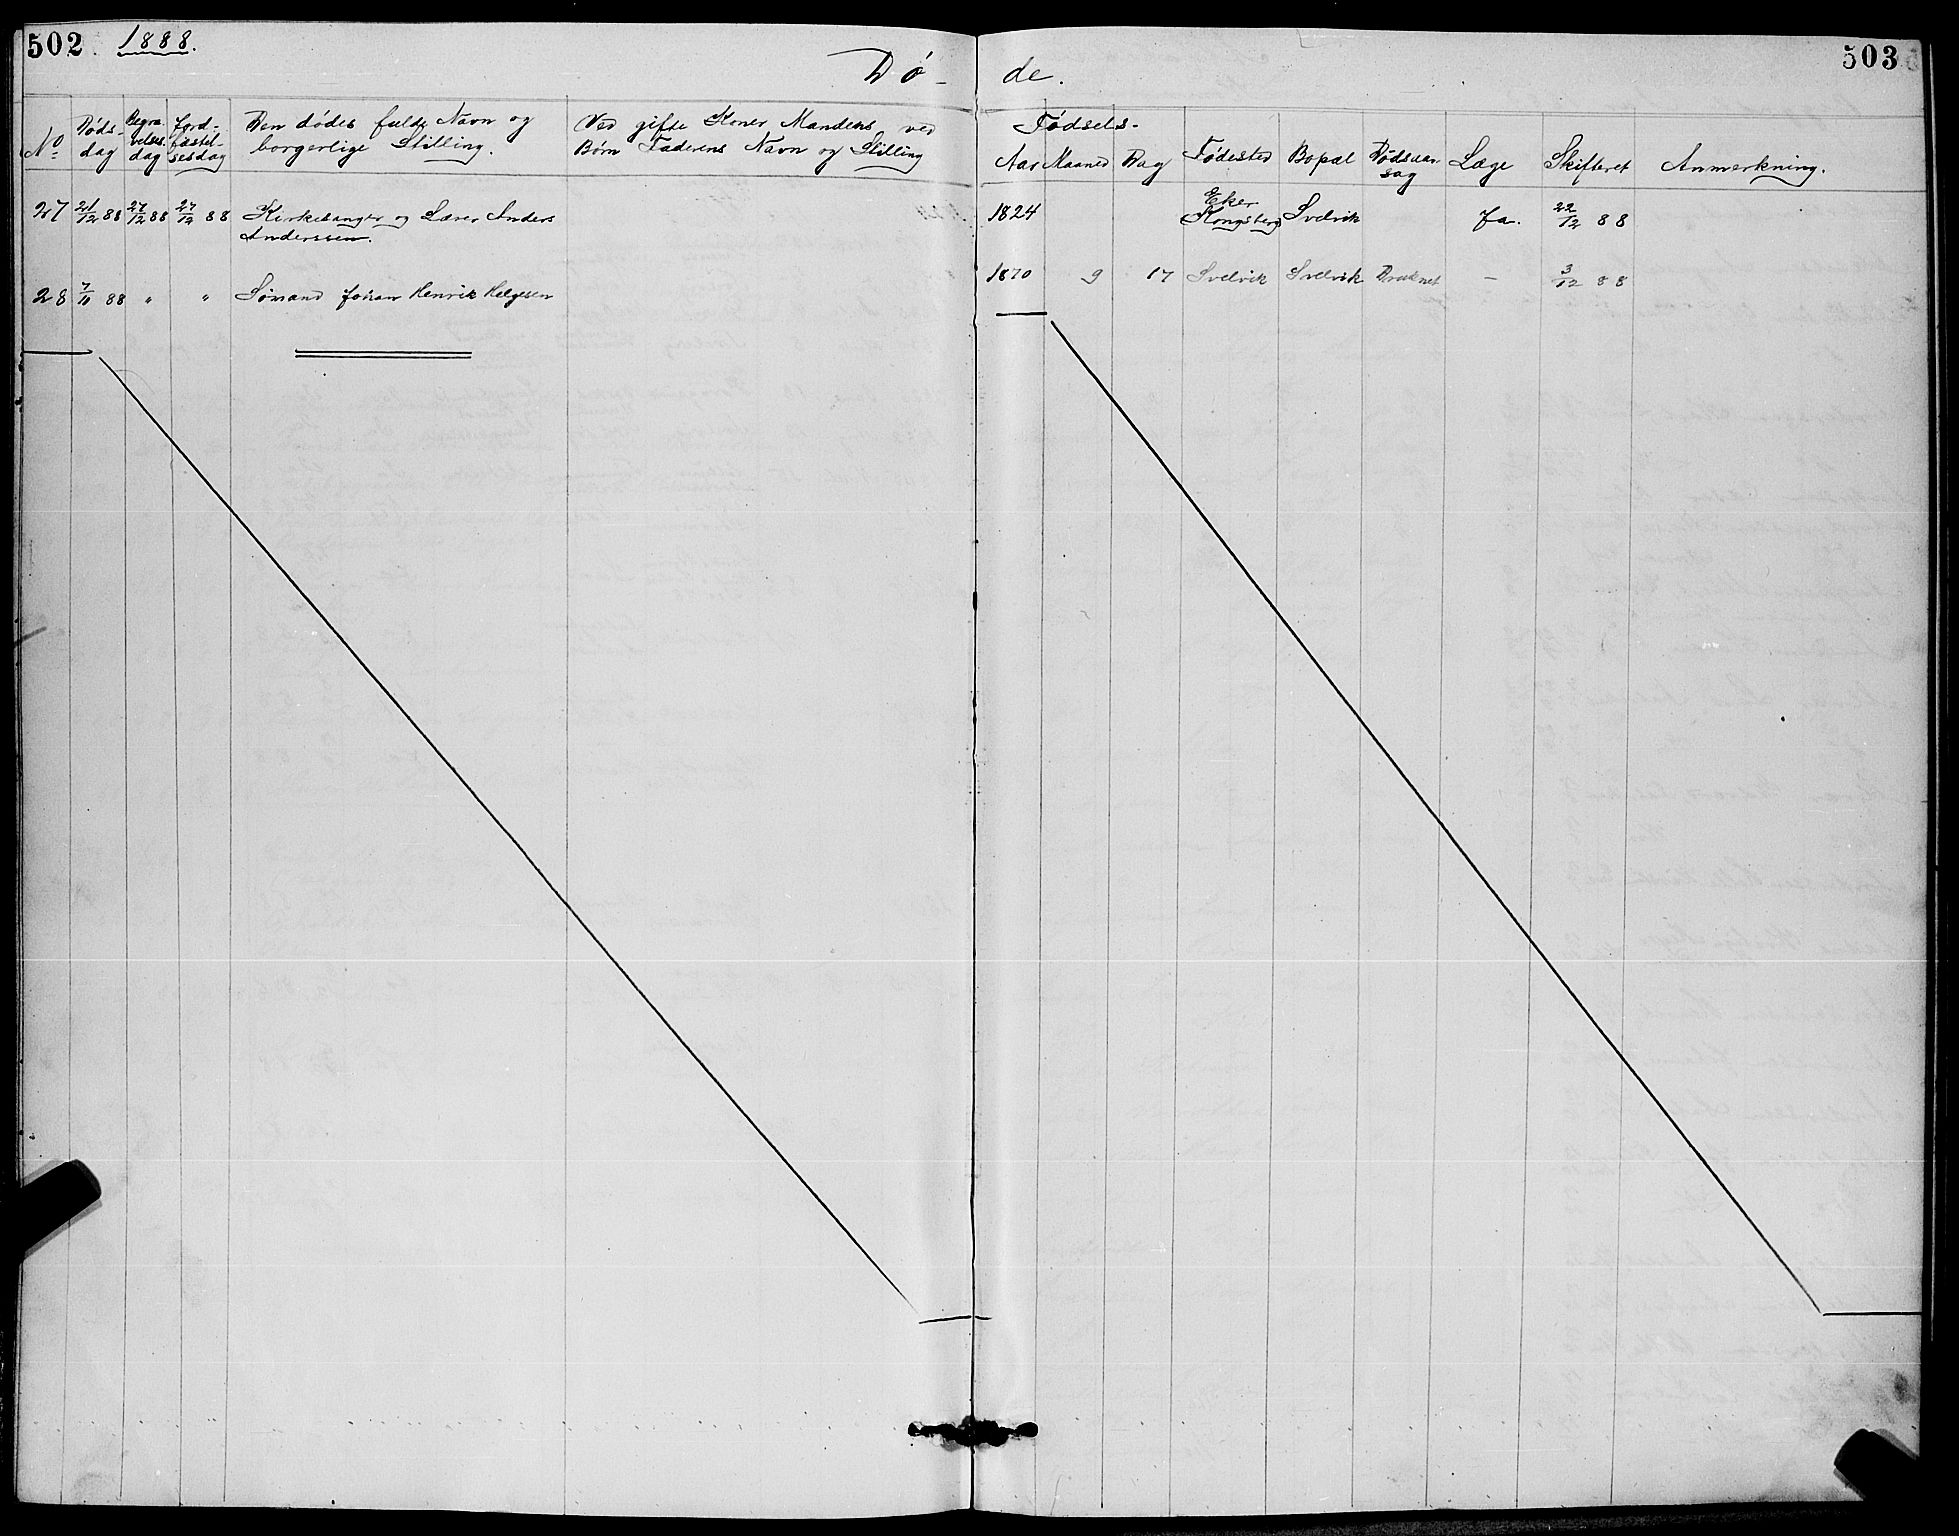 502. 1888.
503
Dø-de.
No
Døds-dag
Begravelsesdag
Jordfæstelsesdag
Den dødes fulde Navn og borgerlige Stilling.
Ved gifte Koner Mandens ved Børn Faderens Navn og Stilling
Fødsels-
Aar Maaned Dag Fødested Bopæl Dødsaarsag Læge Skifteret Anmerkning.
27 21/12 88 27/12 88 27/12 88 Kirkesanger og Lærer Anders
Anderssen.
1824 Eker Kongsberg Svelvik Ja. 22/12 88
28 7/11 88 " " Sømand Johan Henrik Helgesen
1870 9 17 Svelvik Svelvik Druknet — 3/12 88